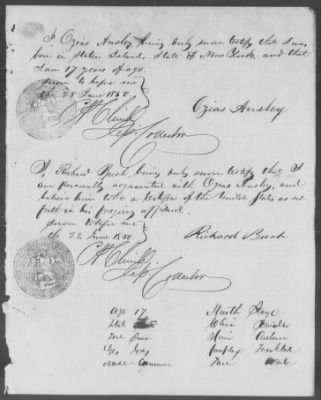 I, Ozias Ansley, being duly sworn testify that I was
born in Staten Island, State of New York, and that
I am 17 years of age
sworn to before me
the 28 June 1850
Ozias Ansley
Dep. Collector
I, Richard Bush, being duly sworn testify that I
am personally acquainted with Ozias Ansley, and
believe him to be a Citizen of the United States as set
forth in his foregoing affidavit
sworn to before me
the 28 June 1850
Richard Bush
Dep. Collector
Age 17 Mouth Large
Chin
Hair Auburn
Eyes Gray Freckled
Nose Common Face Oval